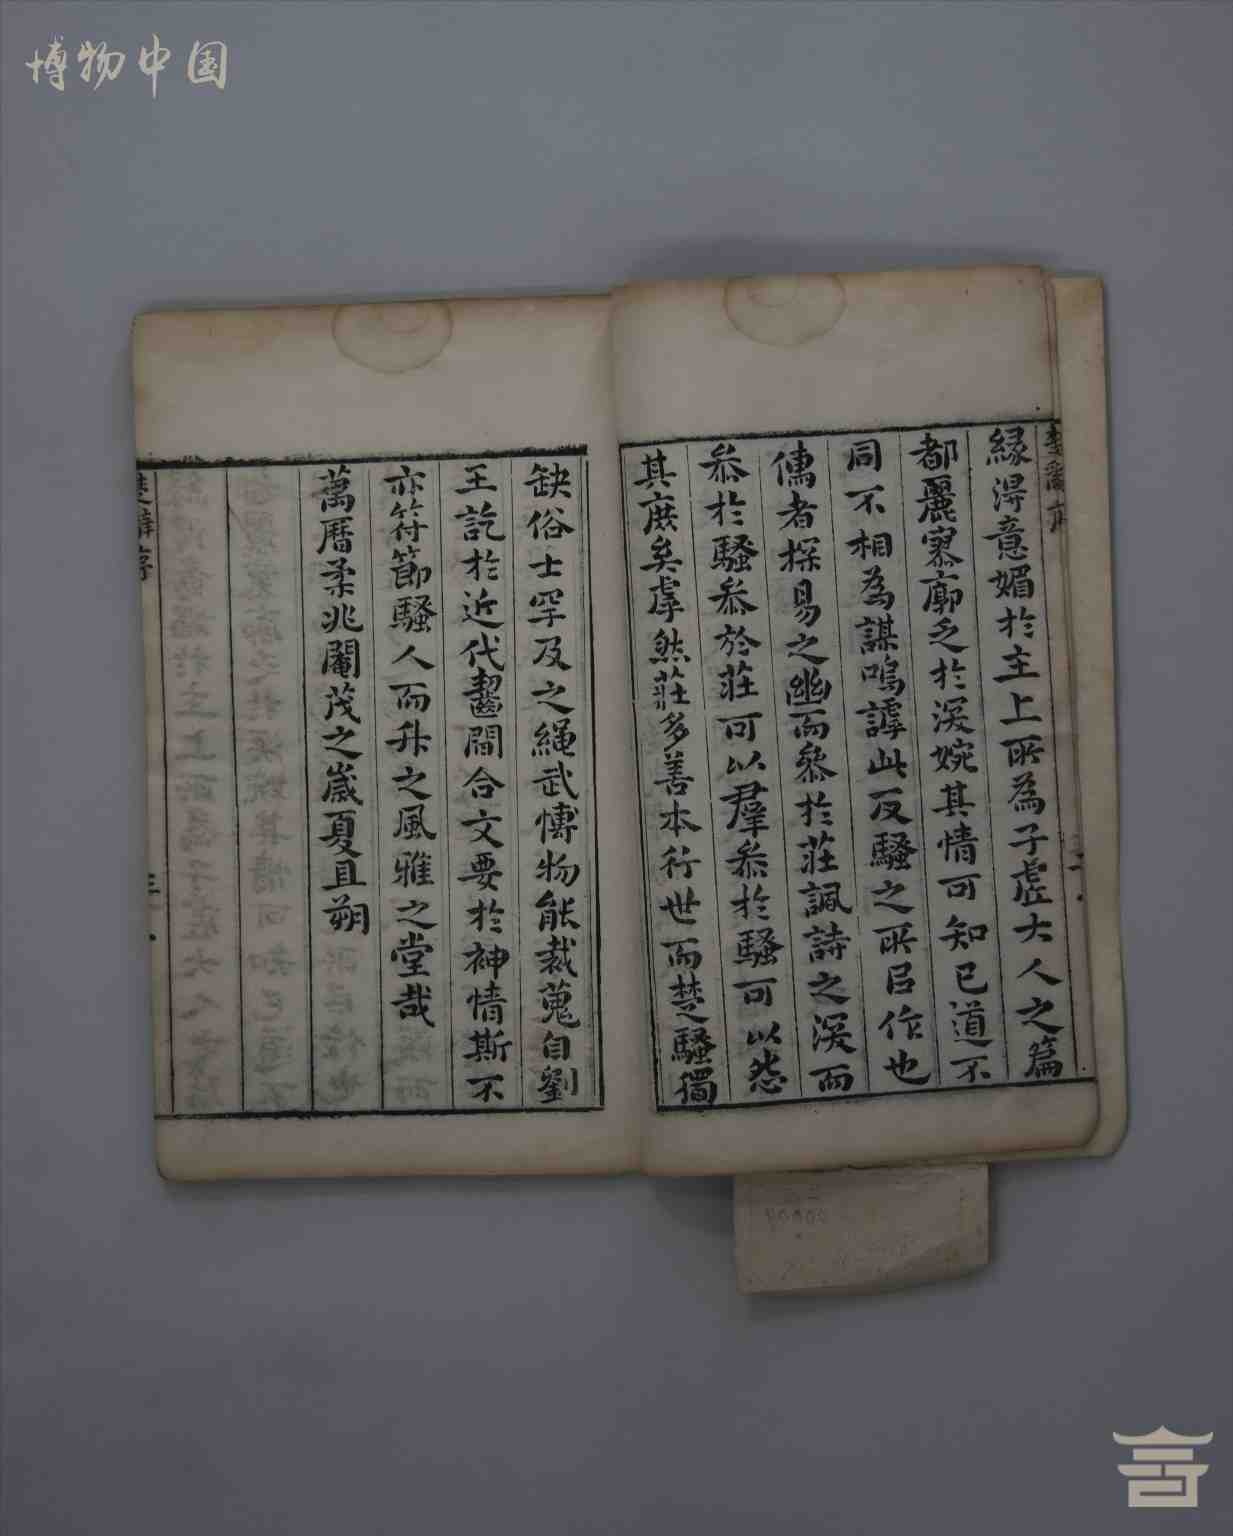 博物中国
緣淂意媚於主上所為子虛大人之篇
都麗寥廓乏於深婉其情可知已道不
同不相為謀嗚謼此反騷之所㠯作也
儒者探易之幽而叅於莊諷詩之深而
叅於騷叅於莊可以羣叅於騷可以怨
其庶矣虖然莊多善本行世而楚騷獨
缺俗士罕及之繩武博物能裁蒐自劉
王訖於近代齧闔合文要於神情斯不
亦符節騷人而升之風雅之堂哉
萬曆柔兆閹茂之歲夏且朔
楚辭序